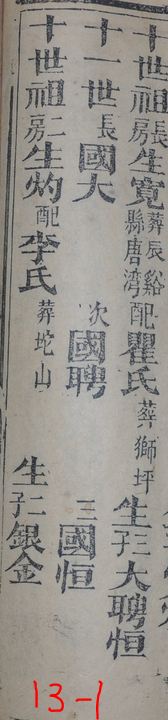 十世祖長房生寬葬辰谿縣唐湾配瞿氏葬獅坪生子三大聘恒
十一世長國大 次國聘 三國恒
十世祖二房生灼配李氏葬坨山 生子二銀金
13-1